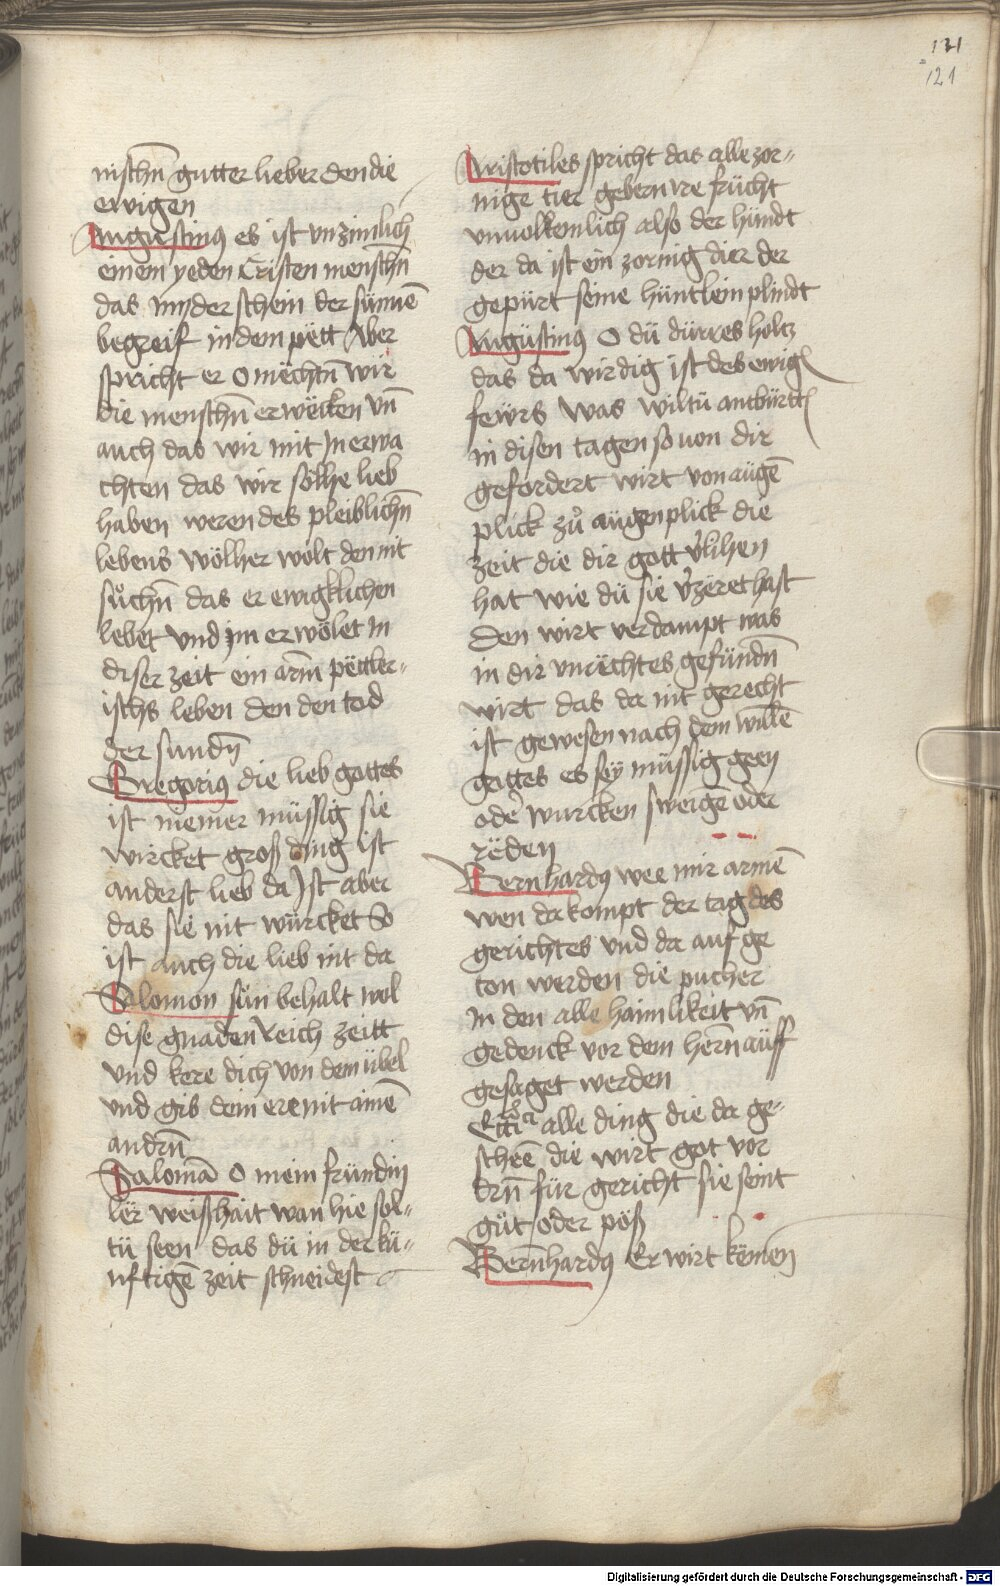 131
121
nischn̄ gutter lieber den die
ewigen
Augustinus es ist vnzimlich
einem yeden Cristen menschn̄
das Inn der schein der sunnē
begreif in dem pëtt Aber
spricht er O mëchtn̄ wir
die menschn̄ erwëcken vn̄
auch das wir mit In erwa
chten das wir sölhe lieb
haben werendes pleiblichn̄
lebens wölher wolt den nit
sůchn̄ das er ewigklichen
lebet vnd im erwölet In
diser zeit ein arm̄ pëttler-
ischs leben den den tod
der sundn̄
Gregorius die lieb gottes
ist niemer müssig sie
wircket groß ding ist
anderst lieb da Ist aber
das sie nit würcket So
ist auch die lieb nit da
Salomon sun behalt wol
dise gnaden Reich zeitt
vnd kere dich von dem übel
vnd gib dem ere nit ainē
andrn̄
Salomā O mein fründin
ler weißhait wan hie sol-
tü seen das dü in der kü-
nftigē zeit schneidest
Aristotiles spricht das alle zor-
nige tier gebern ire frücht
vnuolkemlich also der hündt
der da ist ein zornig dier der
gepürt seine hüntlein plindt
Augüstinus O dü dürres holtz
das da wirdig ist des ewigen
feẅrs was wiltü antbürtten
in disen tagen so von dir
gefordert wirt von aügē
plick zů aügenplick die
zeit die dir gott v̓lihen
hat wie dü sie v̓zëret hast
den wirt verdampt was
in dir vnrëchtes gefündn̄
wirt das da nit gerecht
ist gewesen nach dem willē
gottes es sëy müssig geen
oder wurcken sweigē oder
rëden
Bernhardus wee mir armē
wen da kompt der tag des
gerichtes vnd da auf ge
ton werden die pücher
In den alle haimlikeit vn̄
gedenck vor dem herrn̄ aüff
gesaget werden
alle ding die da ge-
scheē die wirt got vor
drn̄ für gericht sie seint
güt oder pöß
Bern̄hardus Er wirt kömen
Digitalisierung gefördert durch die Deutsche Forschungsgemeinschaft - DFG